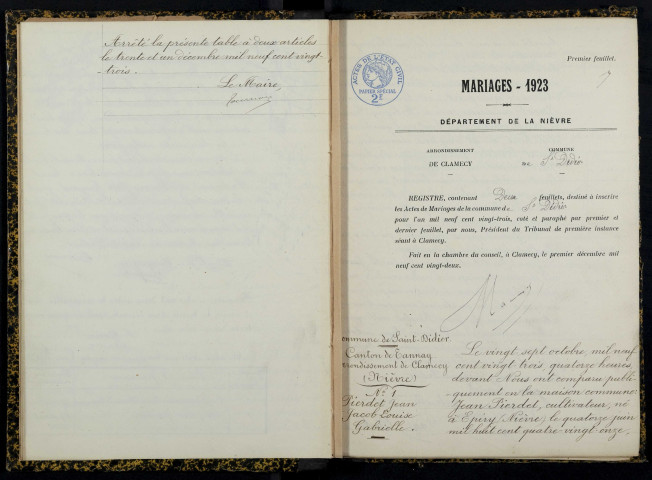 Arrêté la présente table à deux articles
le trente et un décembre mil neuf cent vingt-
trois.
Le Maire,
Premier feuillet.
ACTES DE L'ETAT CIVIL
PAPIER SPÉCIAL
2F
MARIAGES - 1923
DÉPARTEMENT DE LA NIÈVRE
ARRONDISSEMENT
DE CLAMECY
COMMUNE
DE St Didier
REGISTRE, contenant Deux feuillets, destiné à inscrire
les Actes de Mariages de la commune de St Didier
pour l'an mil neuf cent vingt-trois, coté et paraphé par premier et
dernier feuillet, par nous, Président du Tribunal de première instance
séant à Clamecy.
Fait en la chambre du conseil, à Clamecy, le premier décembre mil
neuf cent vingt-deux.
ommune de Saint-Didier
Canton de Tannay
rrondissement de Clamecy
(Nièvre)
N° 1
Pierdet Jean
Jacob Louise
Gabrielle.
Le vingt sept octobre, mil neuf
cent vingt trois, quatorze heures,
devant Nous ont comparu publi-
quement en la maison commune
Jean Pierdet, cultivateur, né
à Epiry (Nièvre) le quatorze juin
mil huit cent quatre-vingt-onze,